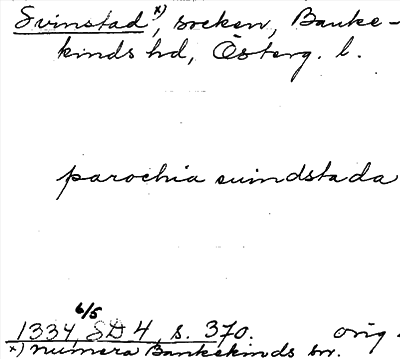 Svinstad x), socken, Banke-
kinds hd, Österg. l.
parochia suindstada
1334 6/5 SD 4, s. 370. orig.
x) numera Bankekinds sn.